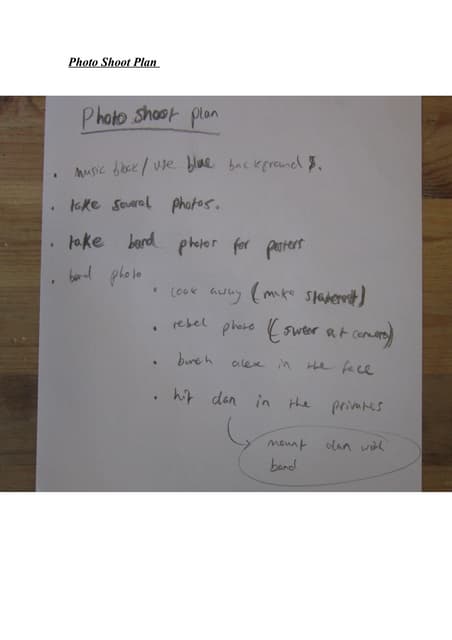 Photo Shoot Plan
Photo shoot plan
• music block/use blue backgrounds.
• take several photos.
• take band photos for posters
• band photo
• look away (make statement)
• rebel photo (swear at camera)
• bunch alex in the face
• hit dan in the privates
mount dan with
band